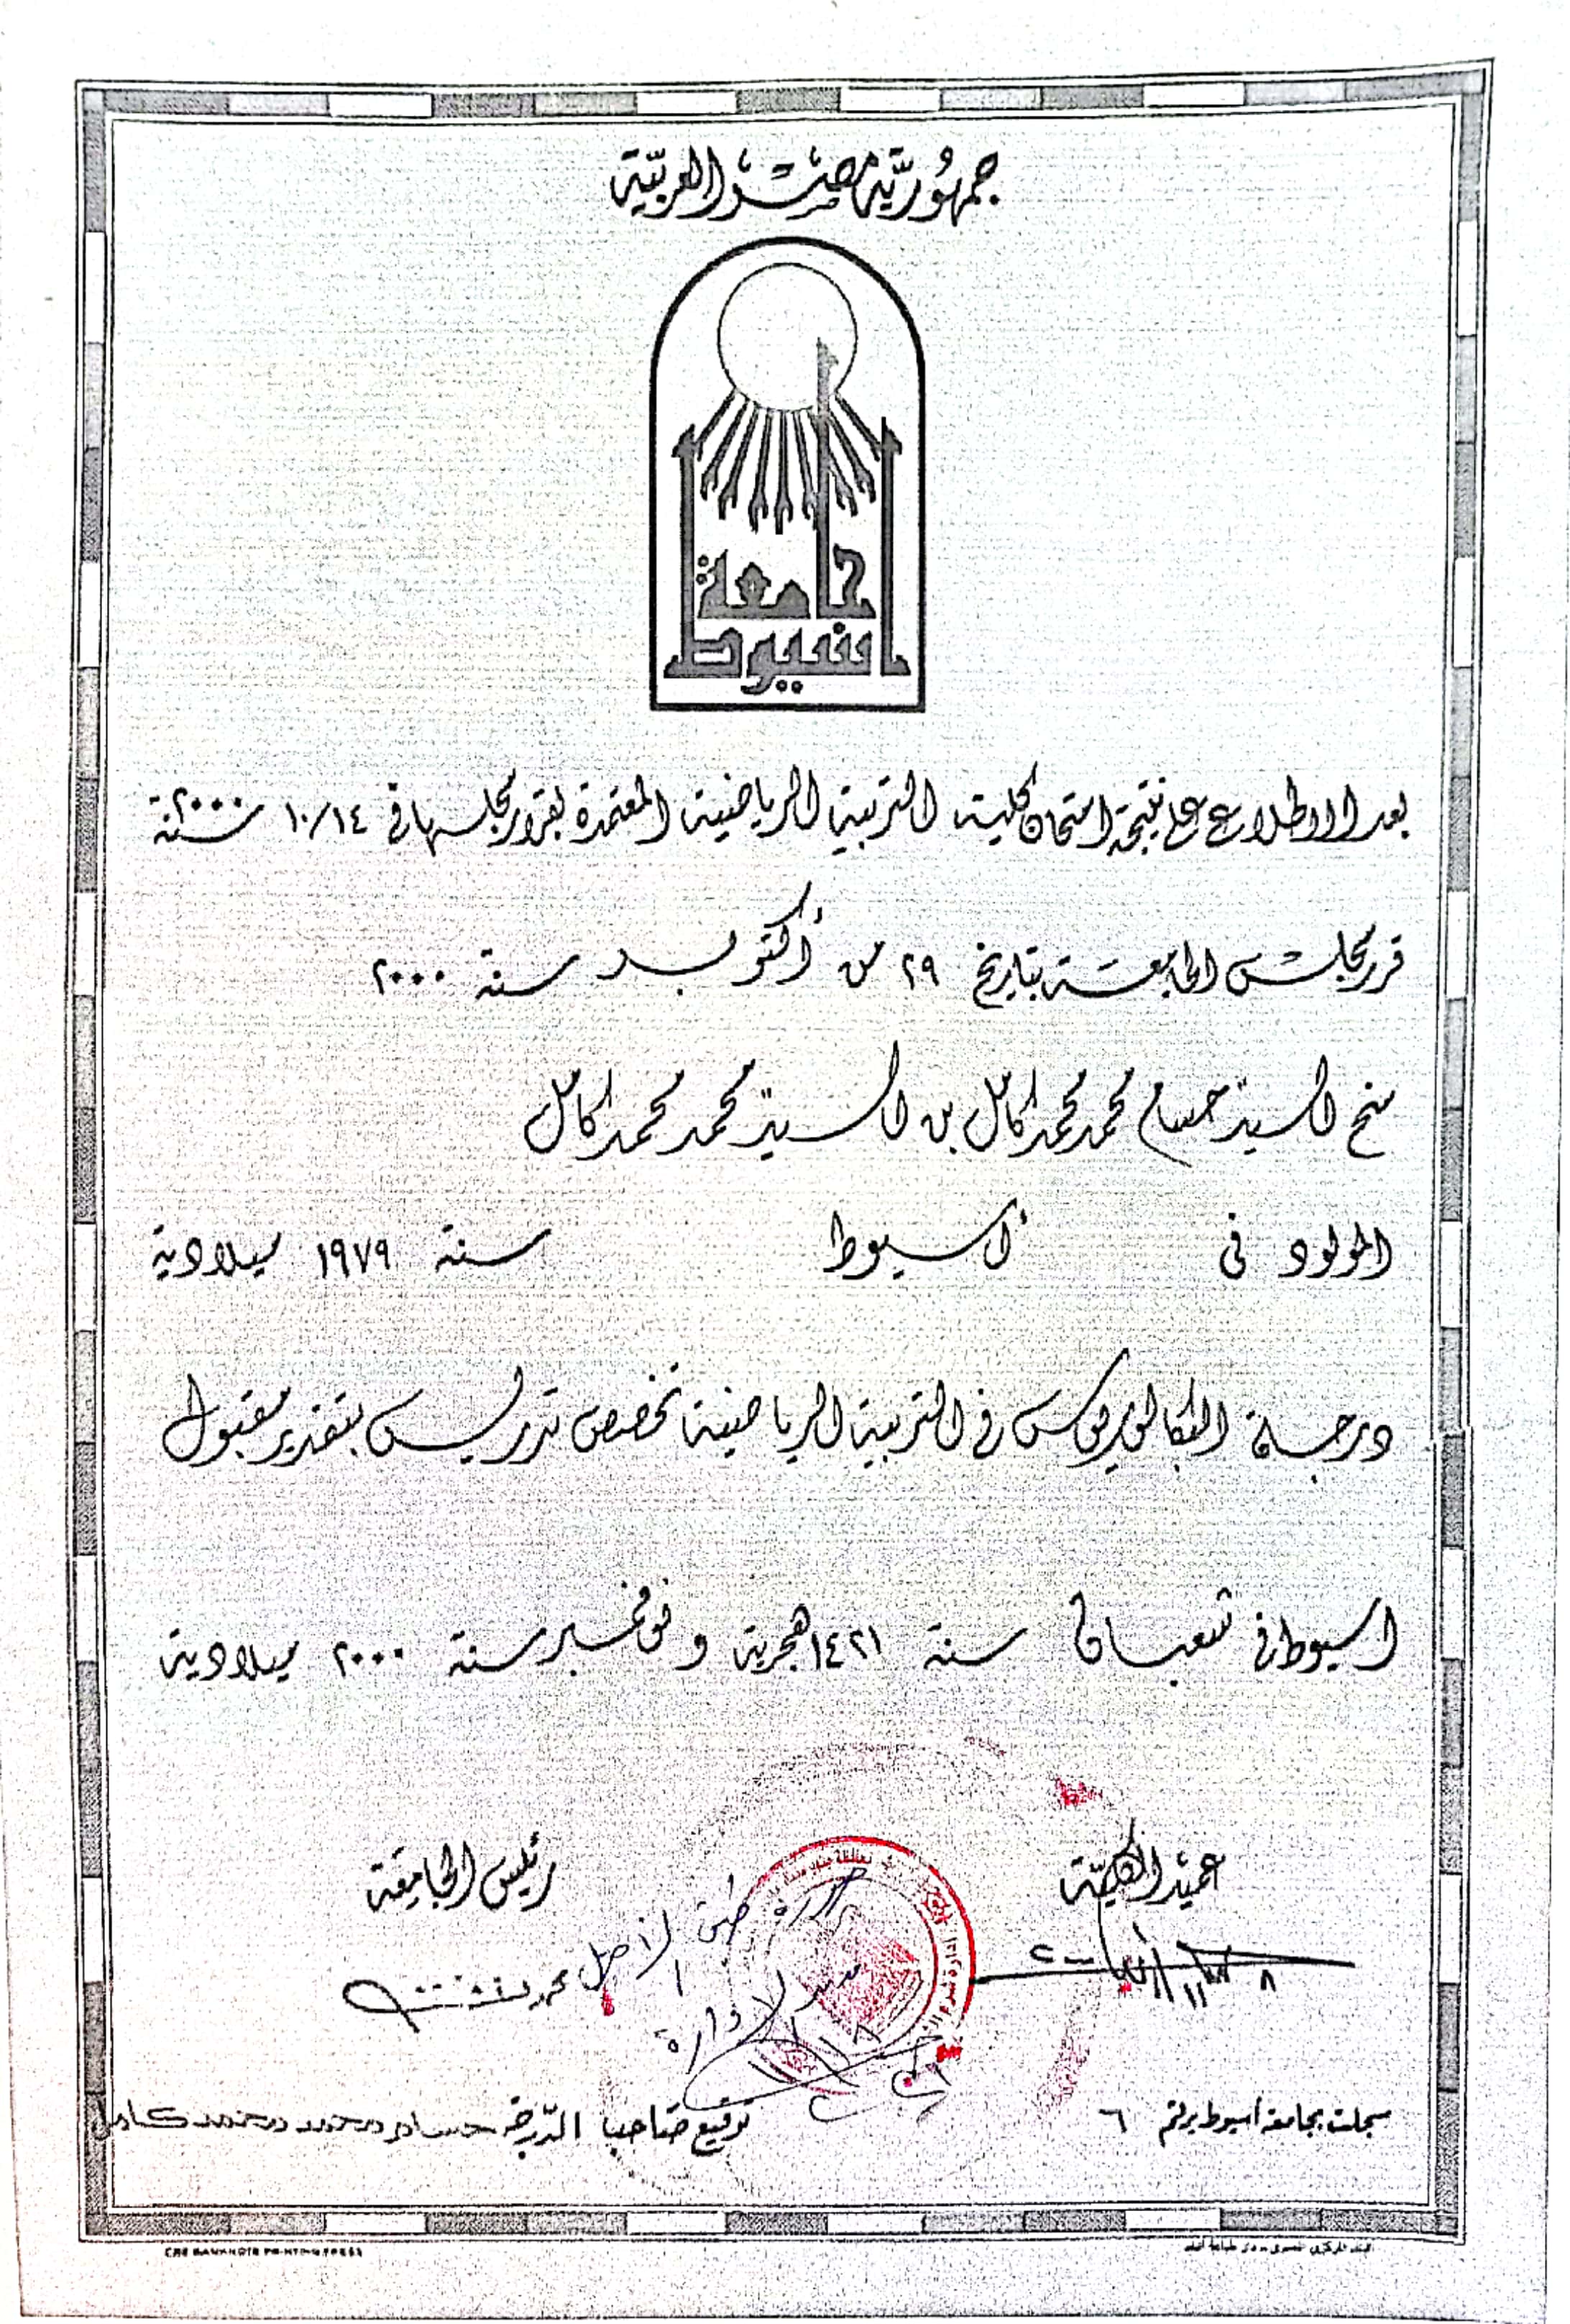 جمهورية مصر العربية
جامعة
أسيوط
بعد الاطلاع على نتيجة امتحان كلية التربية الرياضية المعتمدة بقرار مجلسها في ١٠/١٤ سنة ٢٠٠٠
قرر مجلس الجامعة بتاريخ ٢٩ من أكتوبر سنة ٢٠٠٠
منح السيد حسام محمد محمد كامل بن السيد محمد محمد كامل
المولود فى أسيوط سنة ١٩٧٩ ميلادية
درجة البكالوريوس في التربية الرياضية تخصص تدريس بتقدير مقبول
اسيوط في شعبان سنة ١٤٢١ هجرية و نوفمبر سنة ٢٠٠٠ ميلادية
عميد الكلية
رئيس الجامعة
صورة طبق الأصل
سجلت بجامعة أسيوط برقم ٦
توقيع صاحب الدرجة حسام محمد محمد كامل
CBE BANKNOTE PRINTING PRESS